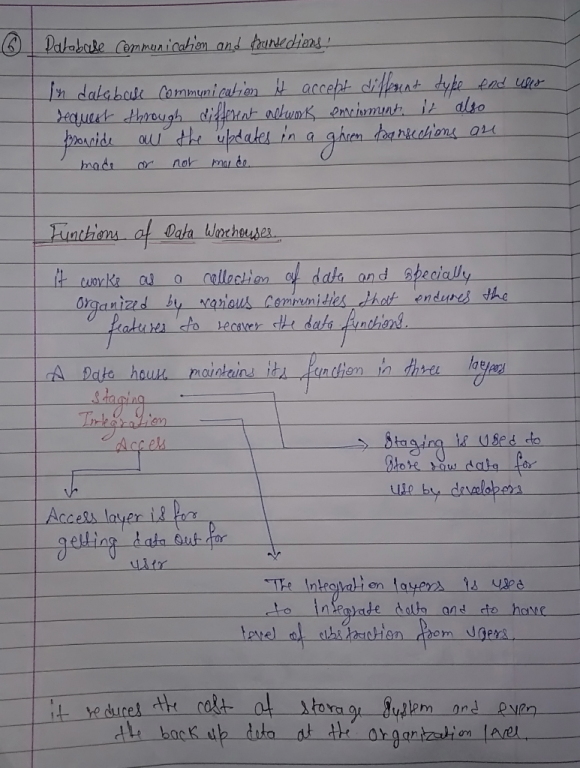 ⑥ Database Communication and transections:
In database Communication it accept different type end user
request through different network enviorment. it also
provide all the updates in a given transections are
made or not made.
Functions of Data Warehouses.
it works as a collection of data and specially
organized by various communities that endures the
features to recover the data functions.
A Data house maintains its function in three layers
Staging
Integration
Access
Staging is used to
Store row data for
use by developers
Access layer is for
getting data out for
user
The Integration layers is used
to integrate data and to have
level of abstraction from users.
it reduces the cost of storage System and even
the back up data at the organization level.